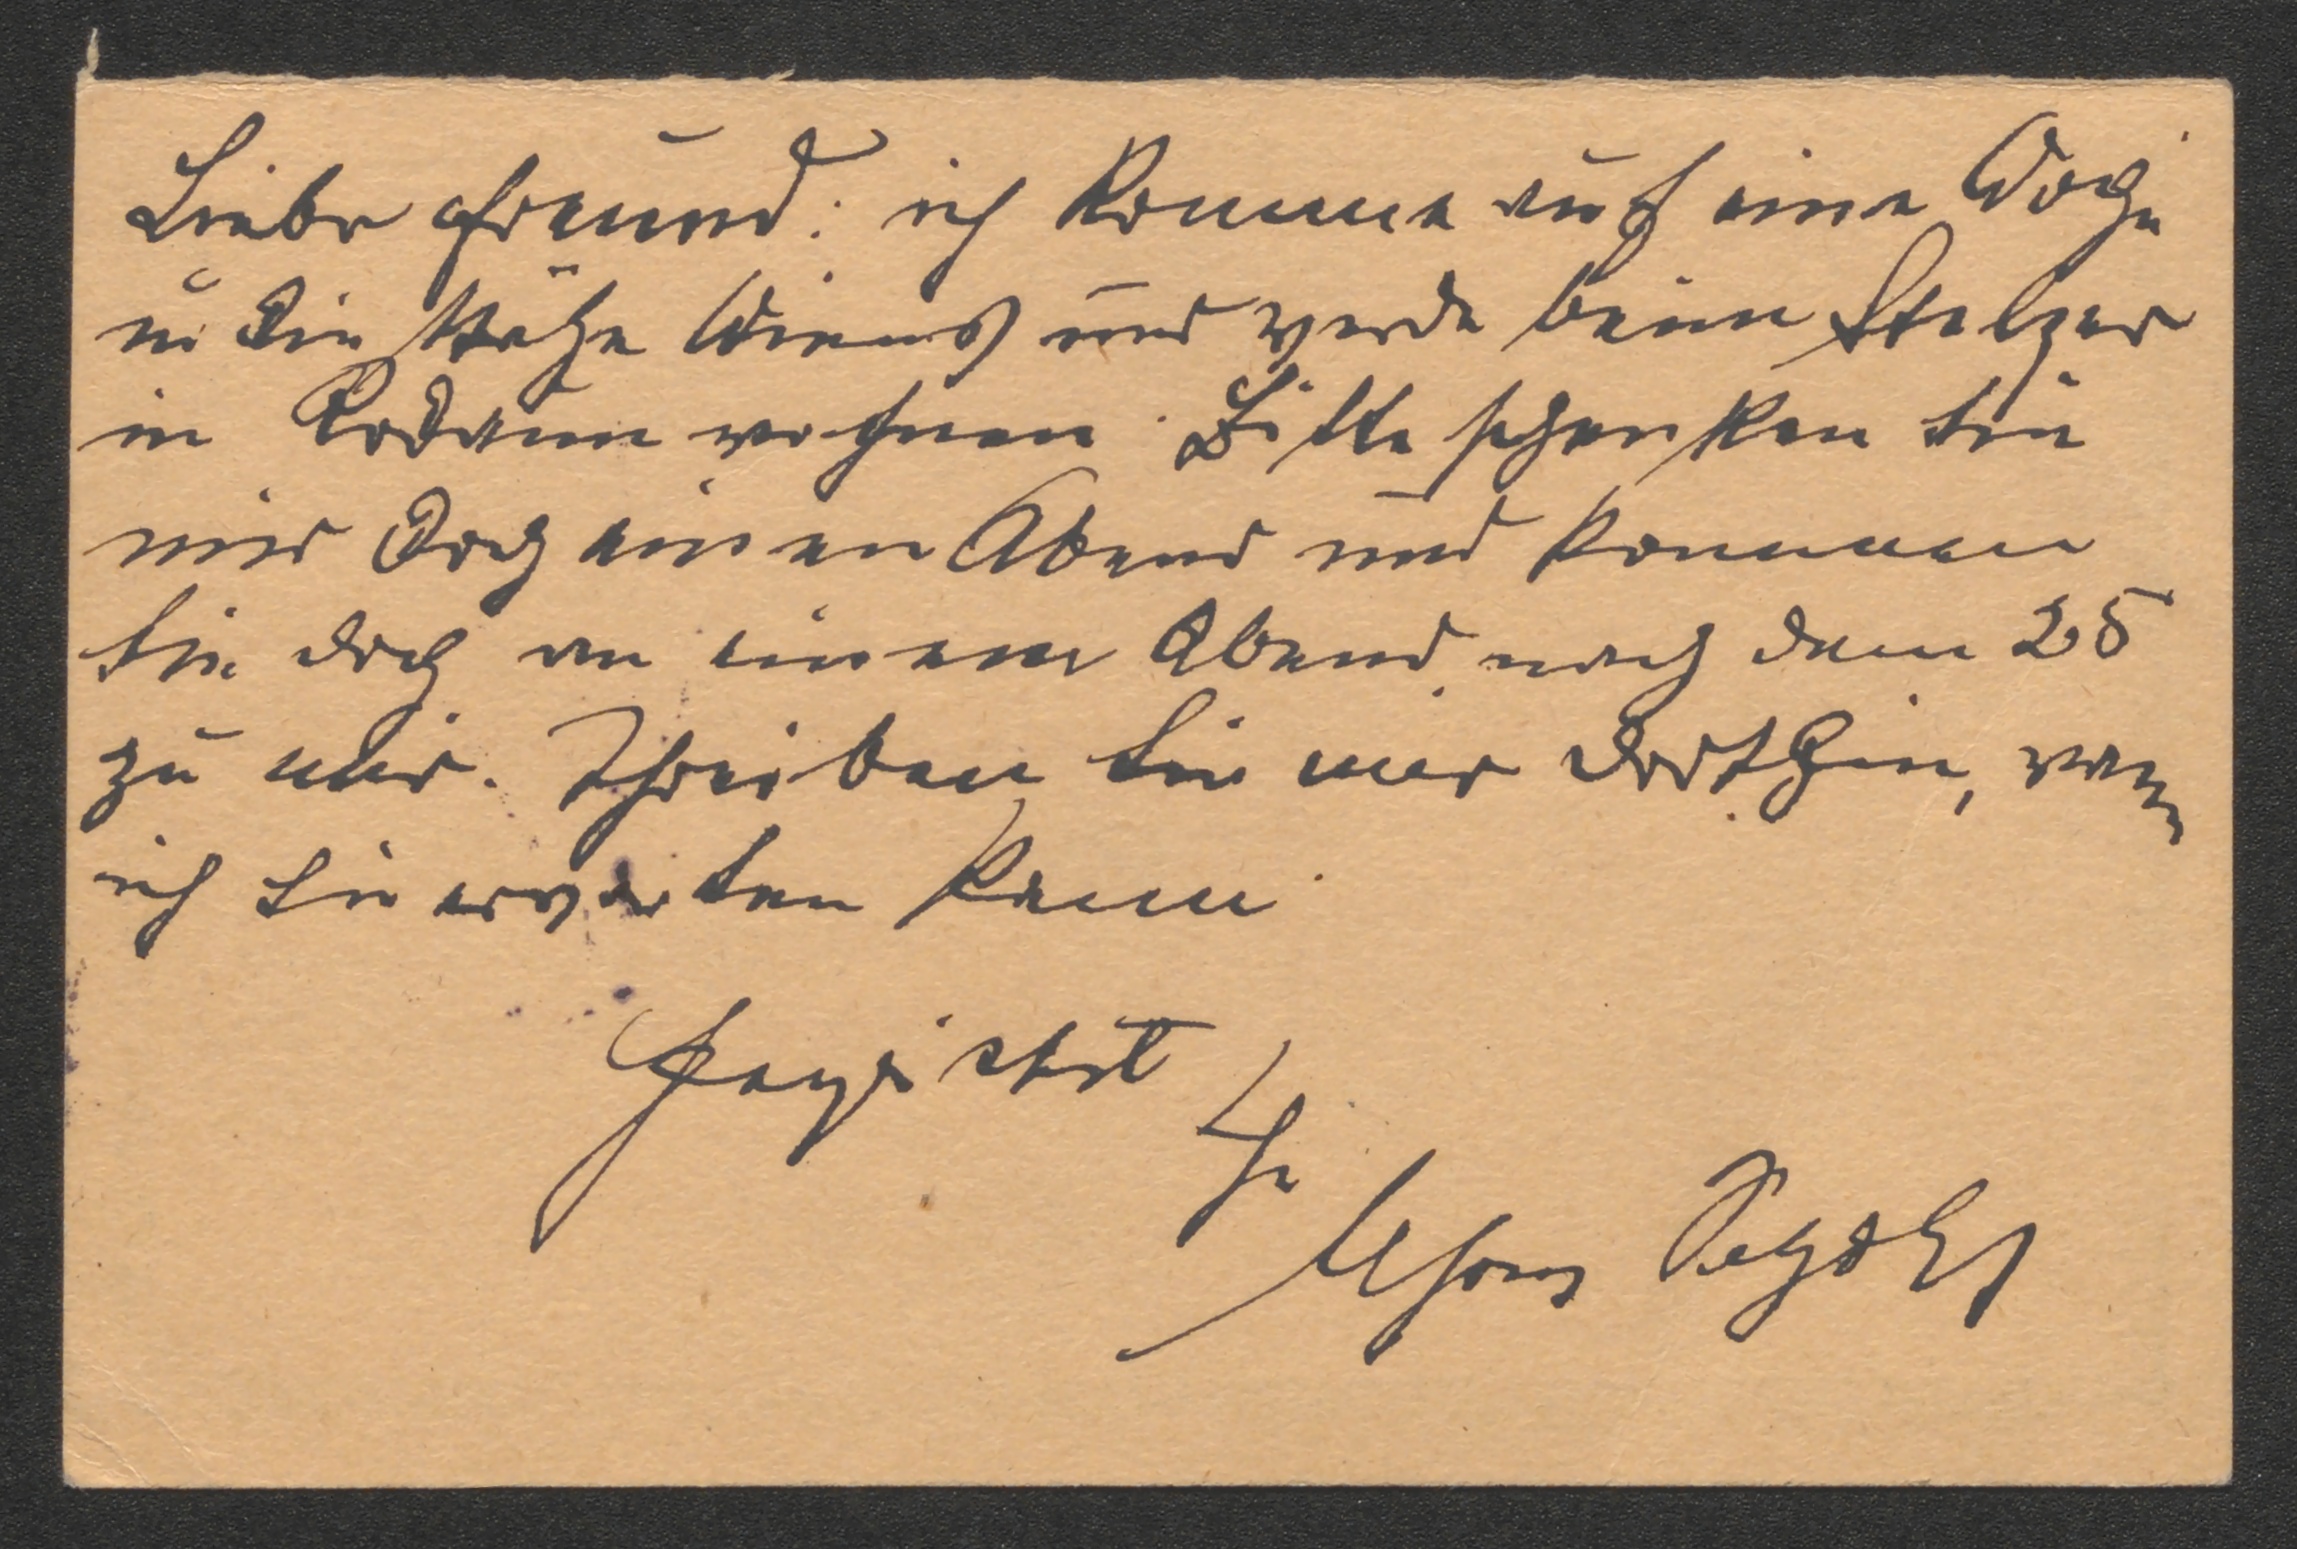 Lieber Freund: ich komme auf eine Woche
in die Nähe Wiens und werde beim Stelzer
in Rodaun wohnen. Bitte schenken Sie
mir doch einen Abend und kommen
Sie doch an einem Abend nach dem 25
zu mir. Schreiben Sie mir dorthin, wann
ich Sie erwarten kann.
Herzlichst
Ihr
Alfons Petzold